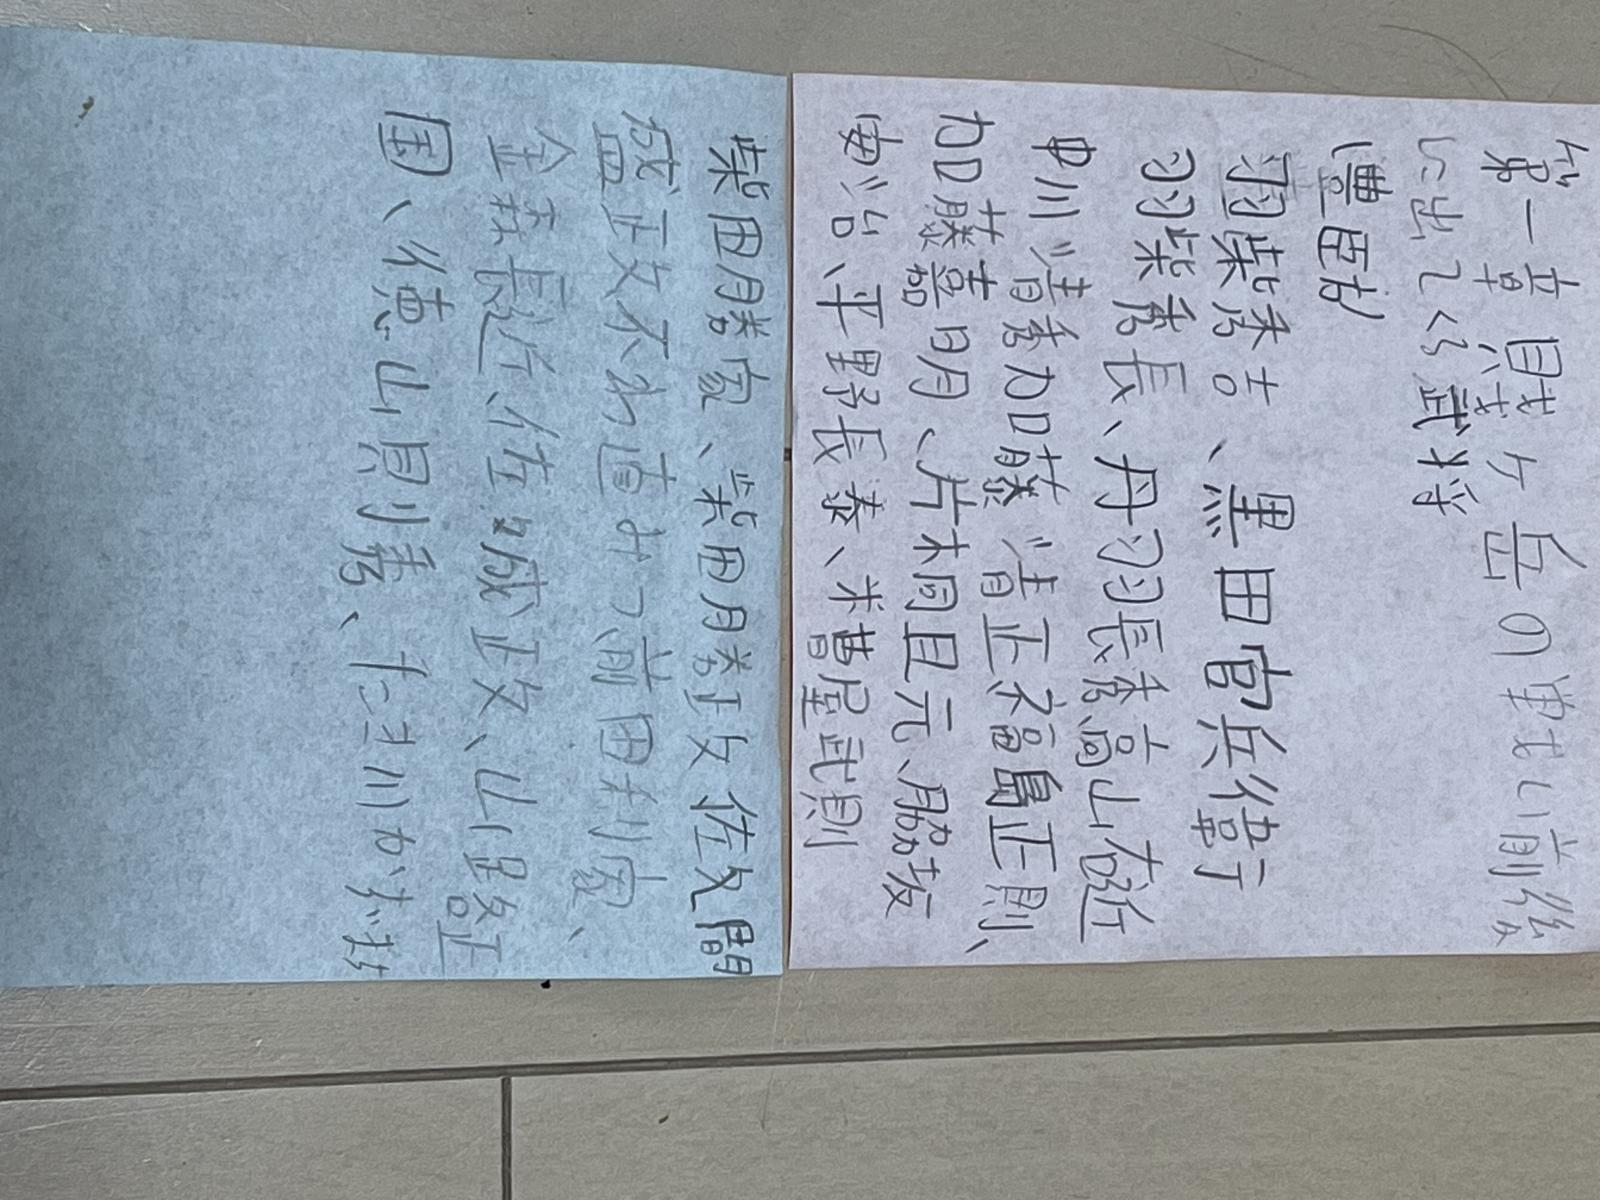 第一章 賤ヶ岳の戦い前後
に出てくる武将
豊臣方
羽柴秀吉、黒田官兵衛
羽柴秀長、丹羽長秀高山右近
中川清秀加藤清正福島正則、
加藤嘉明、片桐且元、脇坂
安治、平野長泰、糟屋武則
柴田勝家、柴田勝政佐久間
盛政不わ直かつ前田利家、
金森長近佐々成政、山路正
国、徳山則秀、